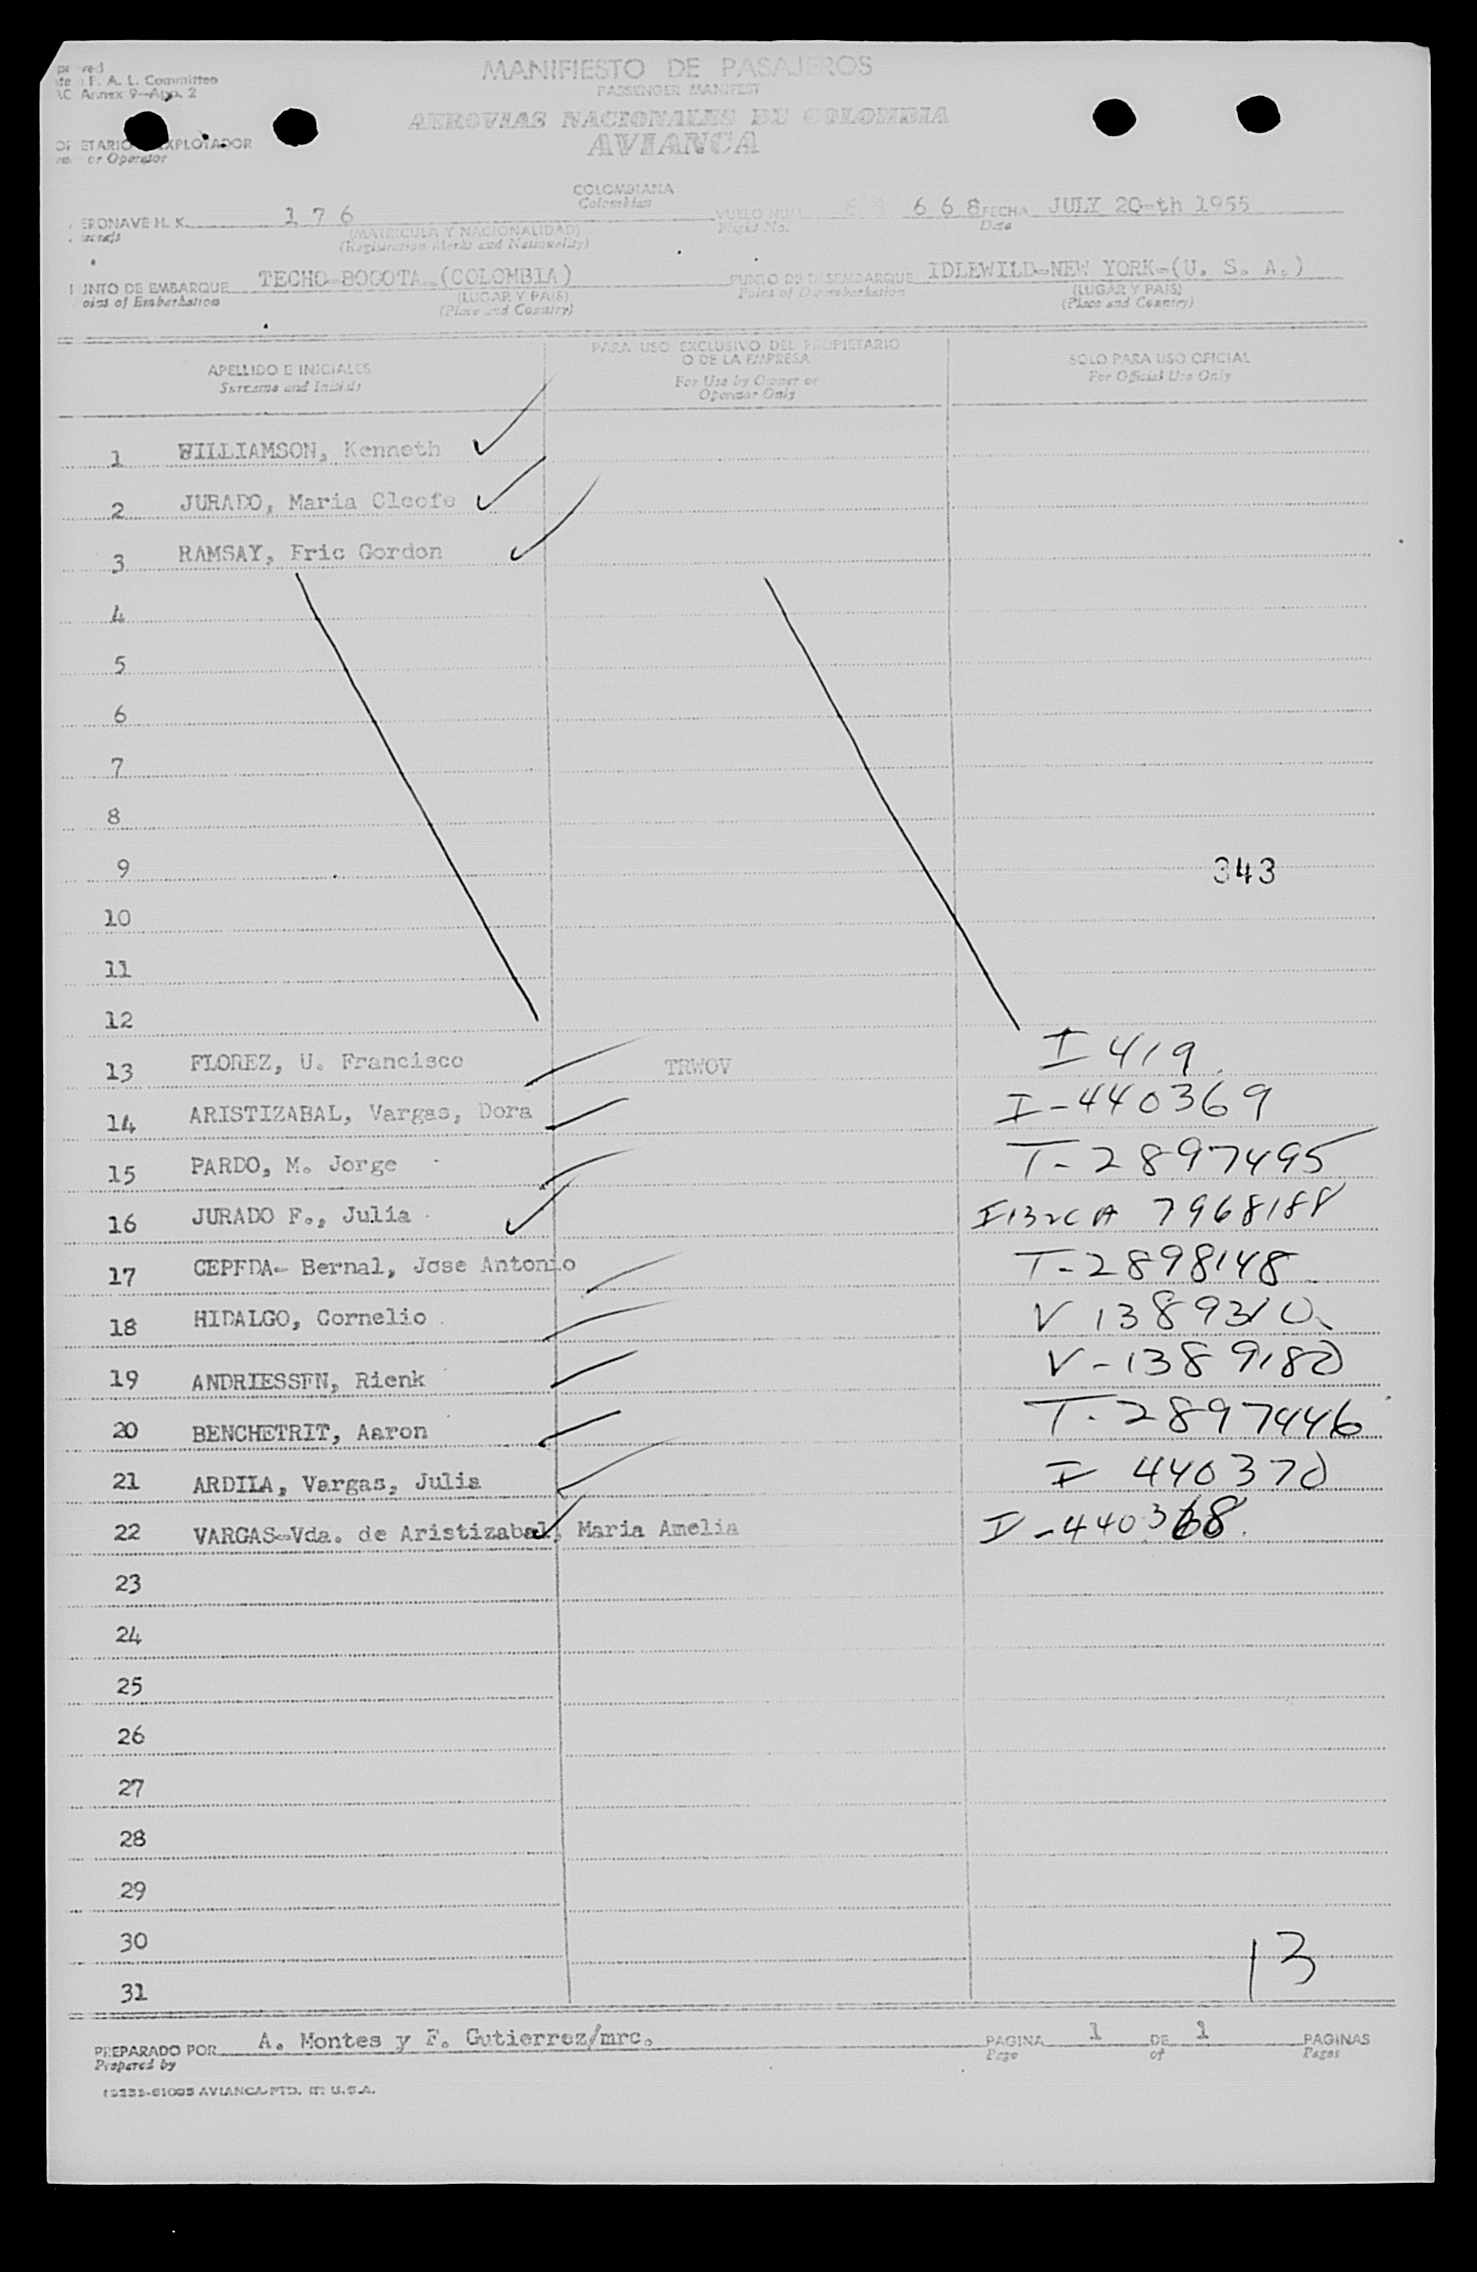 F. A. L. Committee
Annex 9-App. 2
MANIFIESTO DE PASAJEROS
PASSENGER MANIFEST
AEROVIAS NACIONALES DE COLOMBIA
AVIANCA
or Operator
COLOMBIANA
Colombian
H. K. 176 VUELO NUM. 668 FECHA JULY 20-th 1955
(MATRICULA Y NACIONALIDAD) Flight No. Date
(Registration Marks and Nationality)
DE EMBARQUE TECHO-BOGOTA-(COLOMBIA) PUNTO DE DESEMBARQUE IDLEWILD-NEW YORK-(U. S. A.)
of Embarkation (LUGAR Y PAIS) Point of Disembarkation (LUGAR Y PAIS)
(Place and Country) (Place and Country)
APELLIDO E INICIALES
Surname and Initials
PARA USO EXCLUSIVO DEL PROPIETARIO
O DE LA EMPRESA
For Use by Owner or
Operator Only
SOLO PARA USO OFICIAL
For Official Use Only
1 WILLIAMSON, Kenneth
2 JURADO, Maria Cleofe
3 RAMSAY, Eric Gordon
4
5
6
7
8
9 343
10
11
12
13 FLOREZ, U. Francisco TRWOV I 419
14 ARISTIZABAL, Vargas, Dora I-440369
15 PARDO, M. Jorge T-2897495
16 JURADO F., Julia 7968188
17 CEPEDA- Bernal, Jose Antonio T-2898148
18 HIDALGO, Cornelio V 1389310
19 ANDRIESSEN, Rienk V-1389180
20 BENCHETRIT, Aaron T-2897446
21 ARDILA, Vargas, Julia I 440370
22 VARGAS-Vda. de Aristizabal, Maria Amelia I-440368.
23
24
25
26
27
28
29
30
31
13
PREPARADO POR A. Montes y F. Gutierrez/mrc. PAGINA 1 DE 1 PAGINAS
Prepared by Page of Pages
AVIANCA-PTD. IN U.S.A.